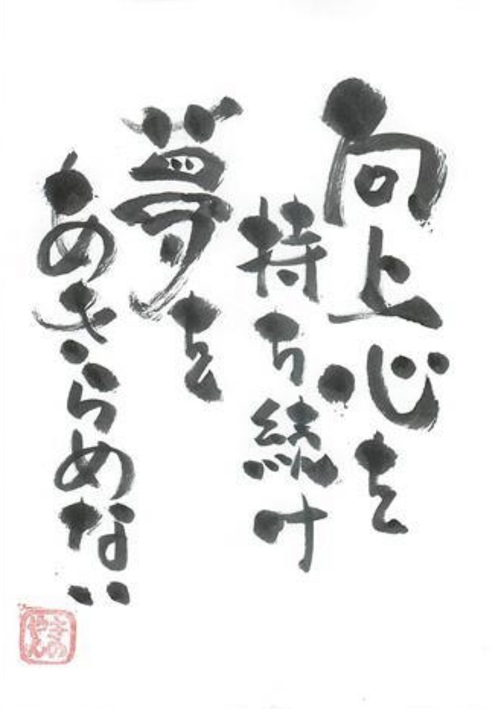 向上心を
持ち続け
夢を
あきらめない